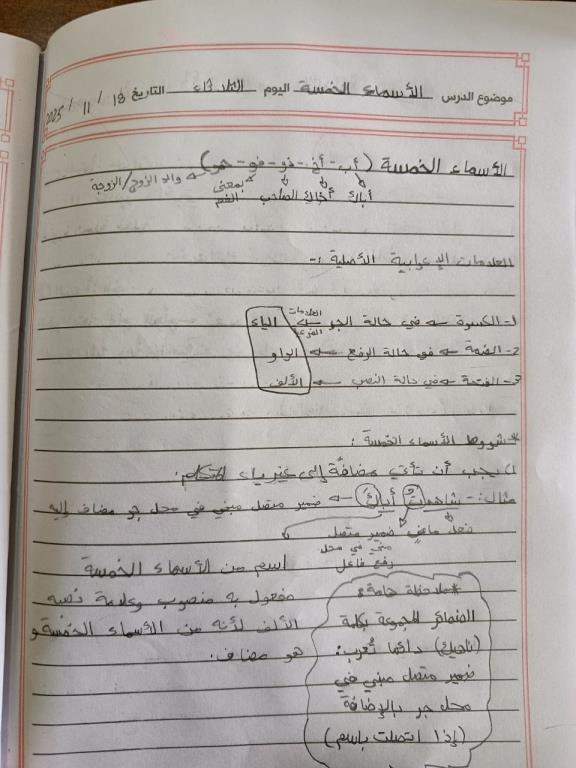 موضوع الدرس الأسماء الخمسة اليوم الثلاثاء التاريخ 18 / 11 / 2025
الأسماء الخمسة (أب - أخ - ذو - فو - حمو) والد الزوج/الزوجة
أباك أخاك الصاحب بمعنى الفم
العلامات الإعرابية الأصلية :-
1- الكسرة في حالة الجر العلامات الفرعية الياء
2- الضمة في حالة الرفع الواو
3- الفتحة في حالة النصب الألف
* شروط الأسماء الخمسة :
1) يجب أن تأتي مضافة إلى غير ياء المتكلم.
مثال:- شاهدتُ أباكَ ضمير متصل مبني في محل جر مضاف إليه
فعل ماضٍ ضمير متصل
مبني في محل
رفع فاعل
اسم من الأسماء الخمسة
مفعول به منصوب وعلامة نصبه
الألف لأنه من الأسماء الخمسة و
هو مضاف.
*ملاحظة هامة:
الضمائر المجموعة بكلمة
(ناهيك) دائما تُعرب:
ضمير متصل مبني في
محل جر بالإضافة
(إذا اتصلت باسم)